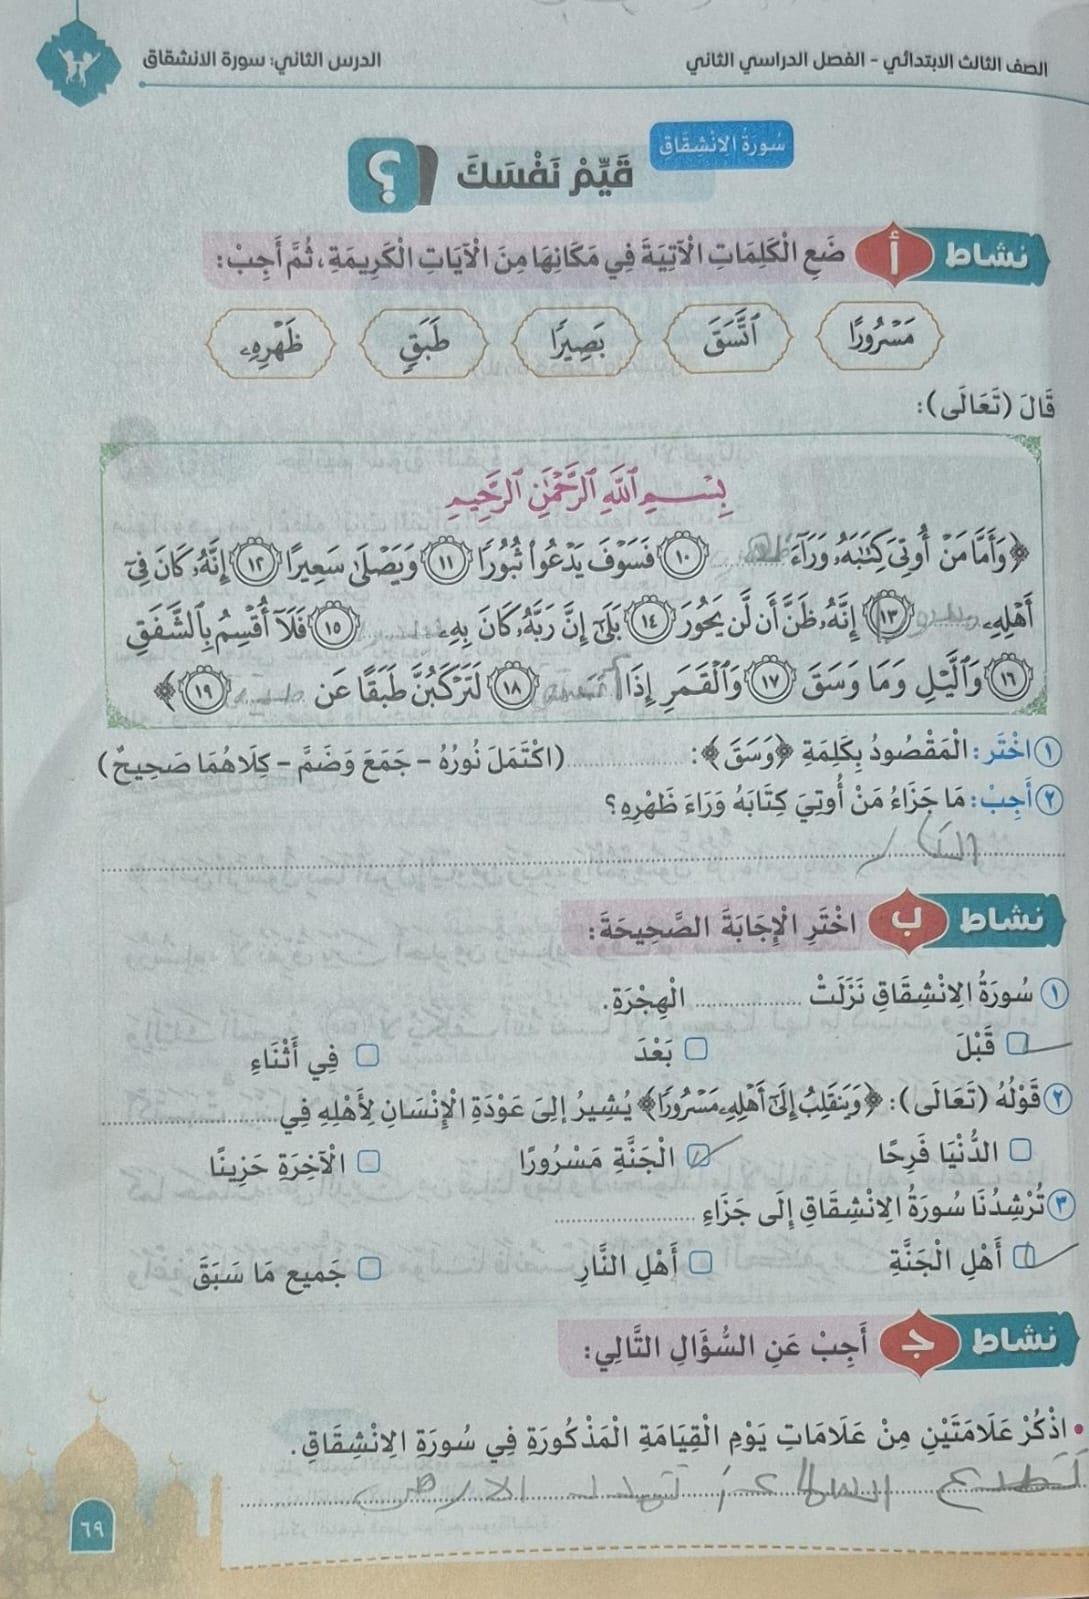 الصف الثالث الابتدائي - الفصل الدراسي الثاني
الدرس الثاني: سورة الانشقاق
سُورَةُ الِانْشِقَاقِ
قَيِّمْ نَفْسَكَ ؟
نشاط أ ضَعِ الْكَلِمَاتِ الْآتِيَةَ فِي مَكَانِهَا مِنَ الْآيَاتِ الْكَرِيمَةِ، ثُمَّ أَجِبْ:
مَسْرُورًا ٱتَّسَقَ بَصِيرًا طَبَقٍ ظَهْرِهِۦ
قَالَ (تَعَالَى):
بِسْمِ ٱللَّهِ ٱلرَّحْمَٰنِ ٱلرَّحِيمِ
﴿وَأَمَّا مَنْ أُوتِيَ كِتَٰبَهُۥ وَرَآءَ ........ ١٠ فَسَوْفَ يَدْعُوا۟ ثُبُورًا ١١ وَيَصْلَىٰ سَعِيرًا ١٢ إِنَّهُۥ كَانَ فِىٓ
أَهْلِهِۦ ........ ١٣ إِنَّهُۥ ظَنَّ أَن لَّن يَحُورَ ١٤ بَلَىٰٓ إِنَّ رَبَّهُۥ كَانَ بِهِۦ ........ ١٥ فَلَآ أُقْسِمُ بِٱلشَّفَقِ
١٦ وَٱلَّيْلِ وَمَا وَسَقَ ١٧ وَٱلْقَمَرِ إِذَا ........ ١٨ لَتَرْكَبُنَّ طَبَقًا عَن ........ ١٩﴾
١ اخْتَر: الْمَقْصُودُ بِكَلِمَةِ ﴿وَسَقَ﴾: ........ (اكْتَمَلَ نُورُهُ - جَمَعَ وَضَمَّ - كِلَاهُمَا صَحِيحٌ)
٢ أَجِبْ: مَا جَزَاءُ مَنْ أُوتِيَ كِتَابَهُ وَرَاءَ ظَهْرِهِ؟
النار
نشاط ب اخْتَرِ الْإِجَابَةَ الصَّحِيحَةَ:
١ سُورَةُ الِانْشِقَاقِ نَزَلَتْ ........ الْهِجْرَةِ.
قَبْلَ بَعْدَ فِي أَثْنَاءِ
٢ قَوْلُهُ (تَعَالَى): ﴿وَيَنقَلِبُ إِلَىٰٓ أَهْلِهِۦ مَسْرُورًا﴾ يُشِيرُ إِلَى عَوْدَةِ الْإِنْسَانِ لِأَهْلِهِ فِي ........
الدُّنْيَا فَرِحًا الْجَنَّةِ مَسْرُورًا الْآخِرَةِ حَزِينًا
٣ تُرْشِدُنَا سُورَةُ الِانْشِقَاقِ إِلَى جَزَاءِ ........
أَهْلِ الْجَنَّةِ أَهْلِ النَّارِ جَمِيع مَا سَبَقَ
نشاط ج أَجِبْ عَنِ السُّؤَالِ التَّالِي:
• اذْكُرْ عَلَامَتَيْنِ مِنْ عَلَامَاتِ يَوْمِ الْقِيَامَةِ الْمَذْكُورَةِ فِي سُورَةِ الِانْشِقَاقِ.
السماء الارض
٦٩